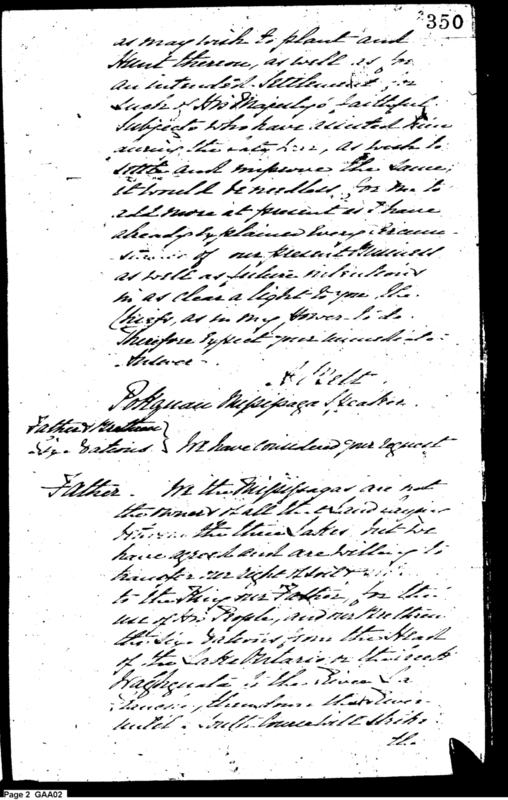 350
as may wish to plant and
Hunt thereon, as well as for
an intended Settlement for
such of His Majesty's faithful
Subjects who have assisted him
during the late War, as wish to
settle and improve the same,
it would be needless for me to
add more at present as I have
already explained every circum-
stance of our present Business
as well as future intentions
in as clear a light to you the
Chiefs, as in my power to do.
Therefore expect your immediate
Answer.
A Belt
Pokquan Misissaga Speaker
Father & Brethren
Six Nations } We have considered your request
Father. We the Misissagas are not
the owners of all that Land laying
between the three Lakes, but we
have agreed and are willing to
transfer our right of Soil &
to the King our Father, for the
use of His People, and our Brethren
the Six Nations from the Head
of the Lake Ontario or the Creek
to the River La
then down the River
until a South Course will strike
the
Page 2 GAA02